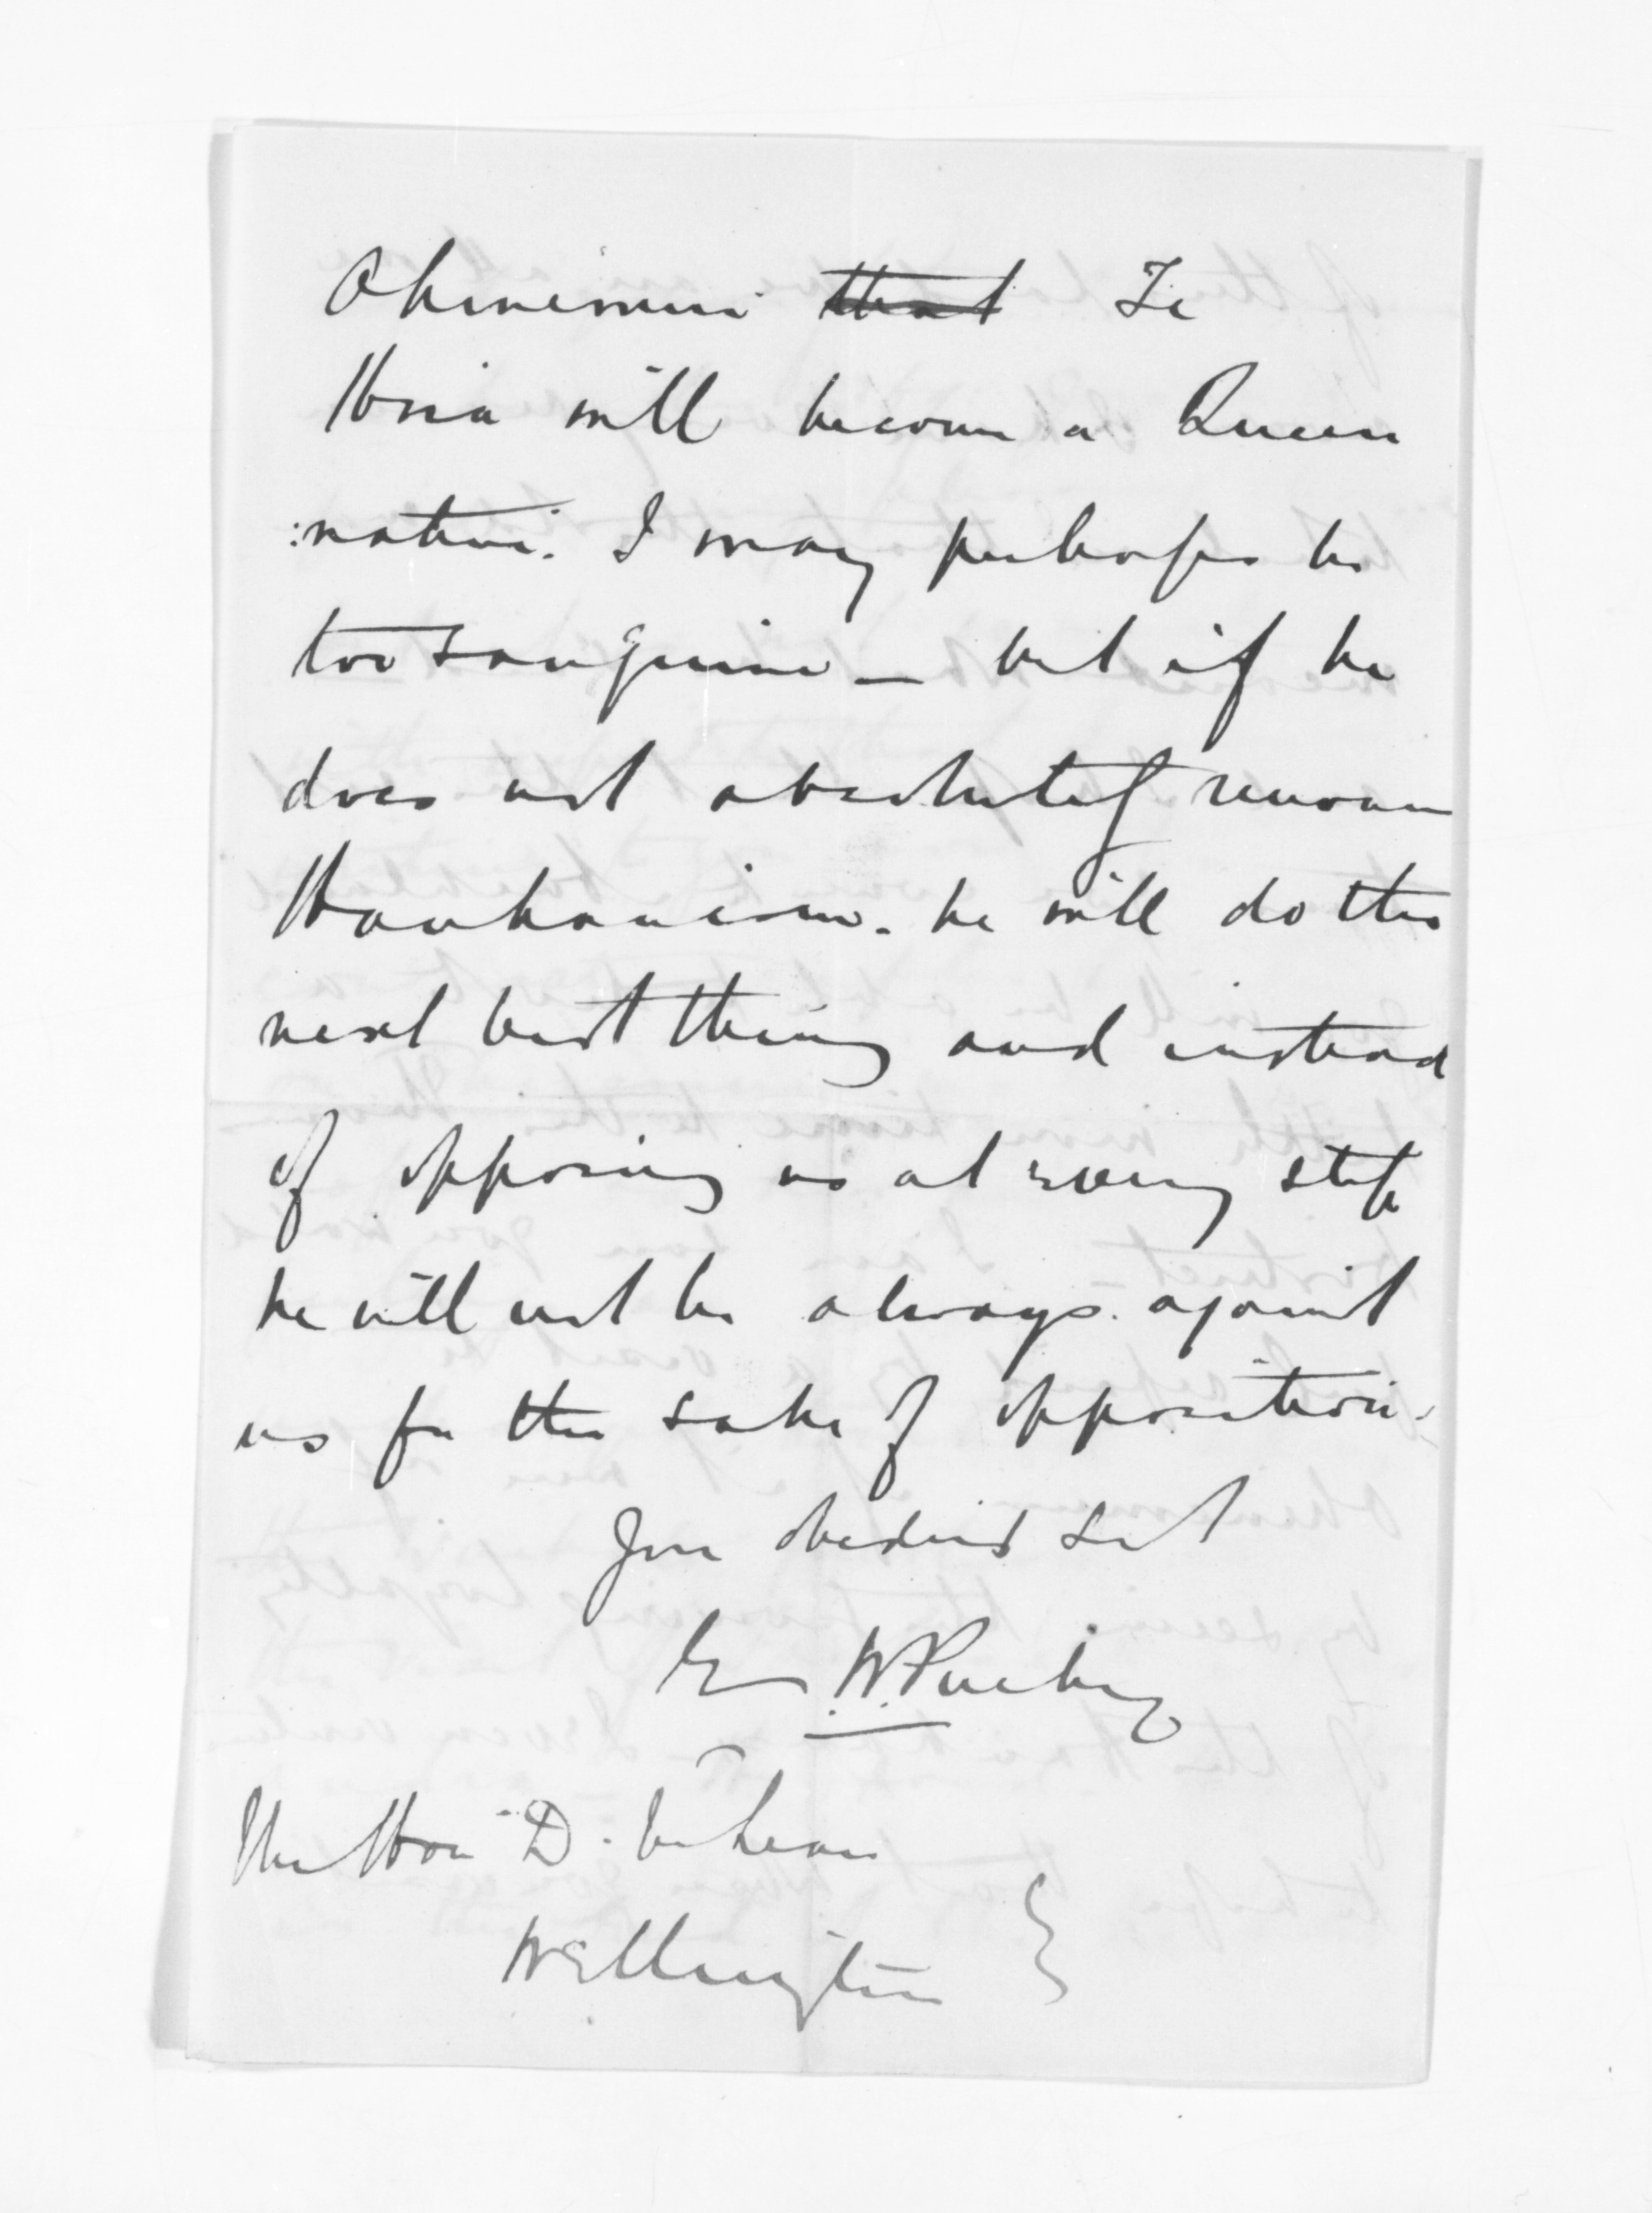 Ohinemuri ~~that~~ Te
Hira will become a Queen
:native. I may perhaps be
too sanguine _ but if he
does not absolutely renounce
Hauhauism. he will do the
next best thing and instead
of opposing us at every step
he will not be always against
us for the sake of opposition.
Your obedient Svt
E W Puckey
The Hon D. McLean
Wellington